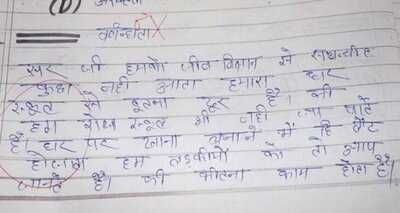 (D)
सर जी हमको जीव विज्ञान से सम्बन्धीत
कुछ नहीं आता हमारा घर
स्कूल से इतना दूर है। की
हम रोज स्कूल भी नहीं जा पाते
है। घर पर खाना बनाने में हि लेट
होजाता हम लड़कीयों को तो आप
जानते है। की कीतना काम होता है।